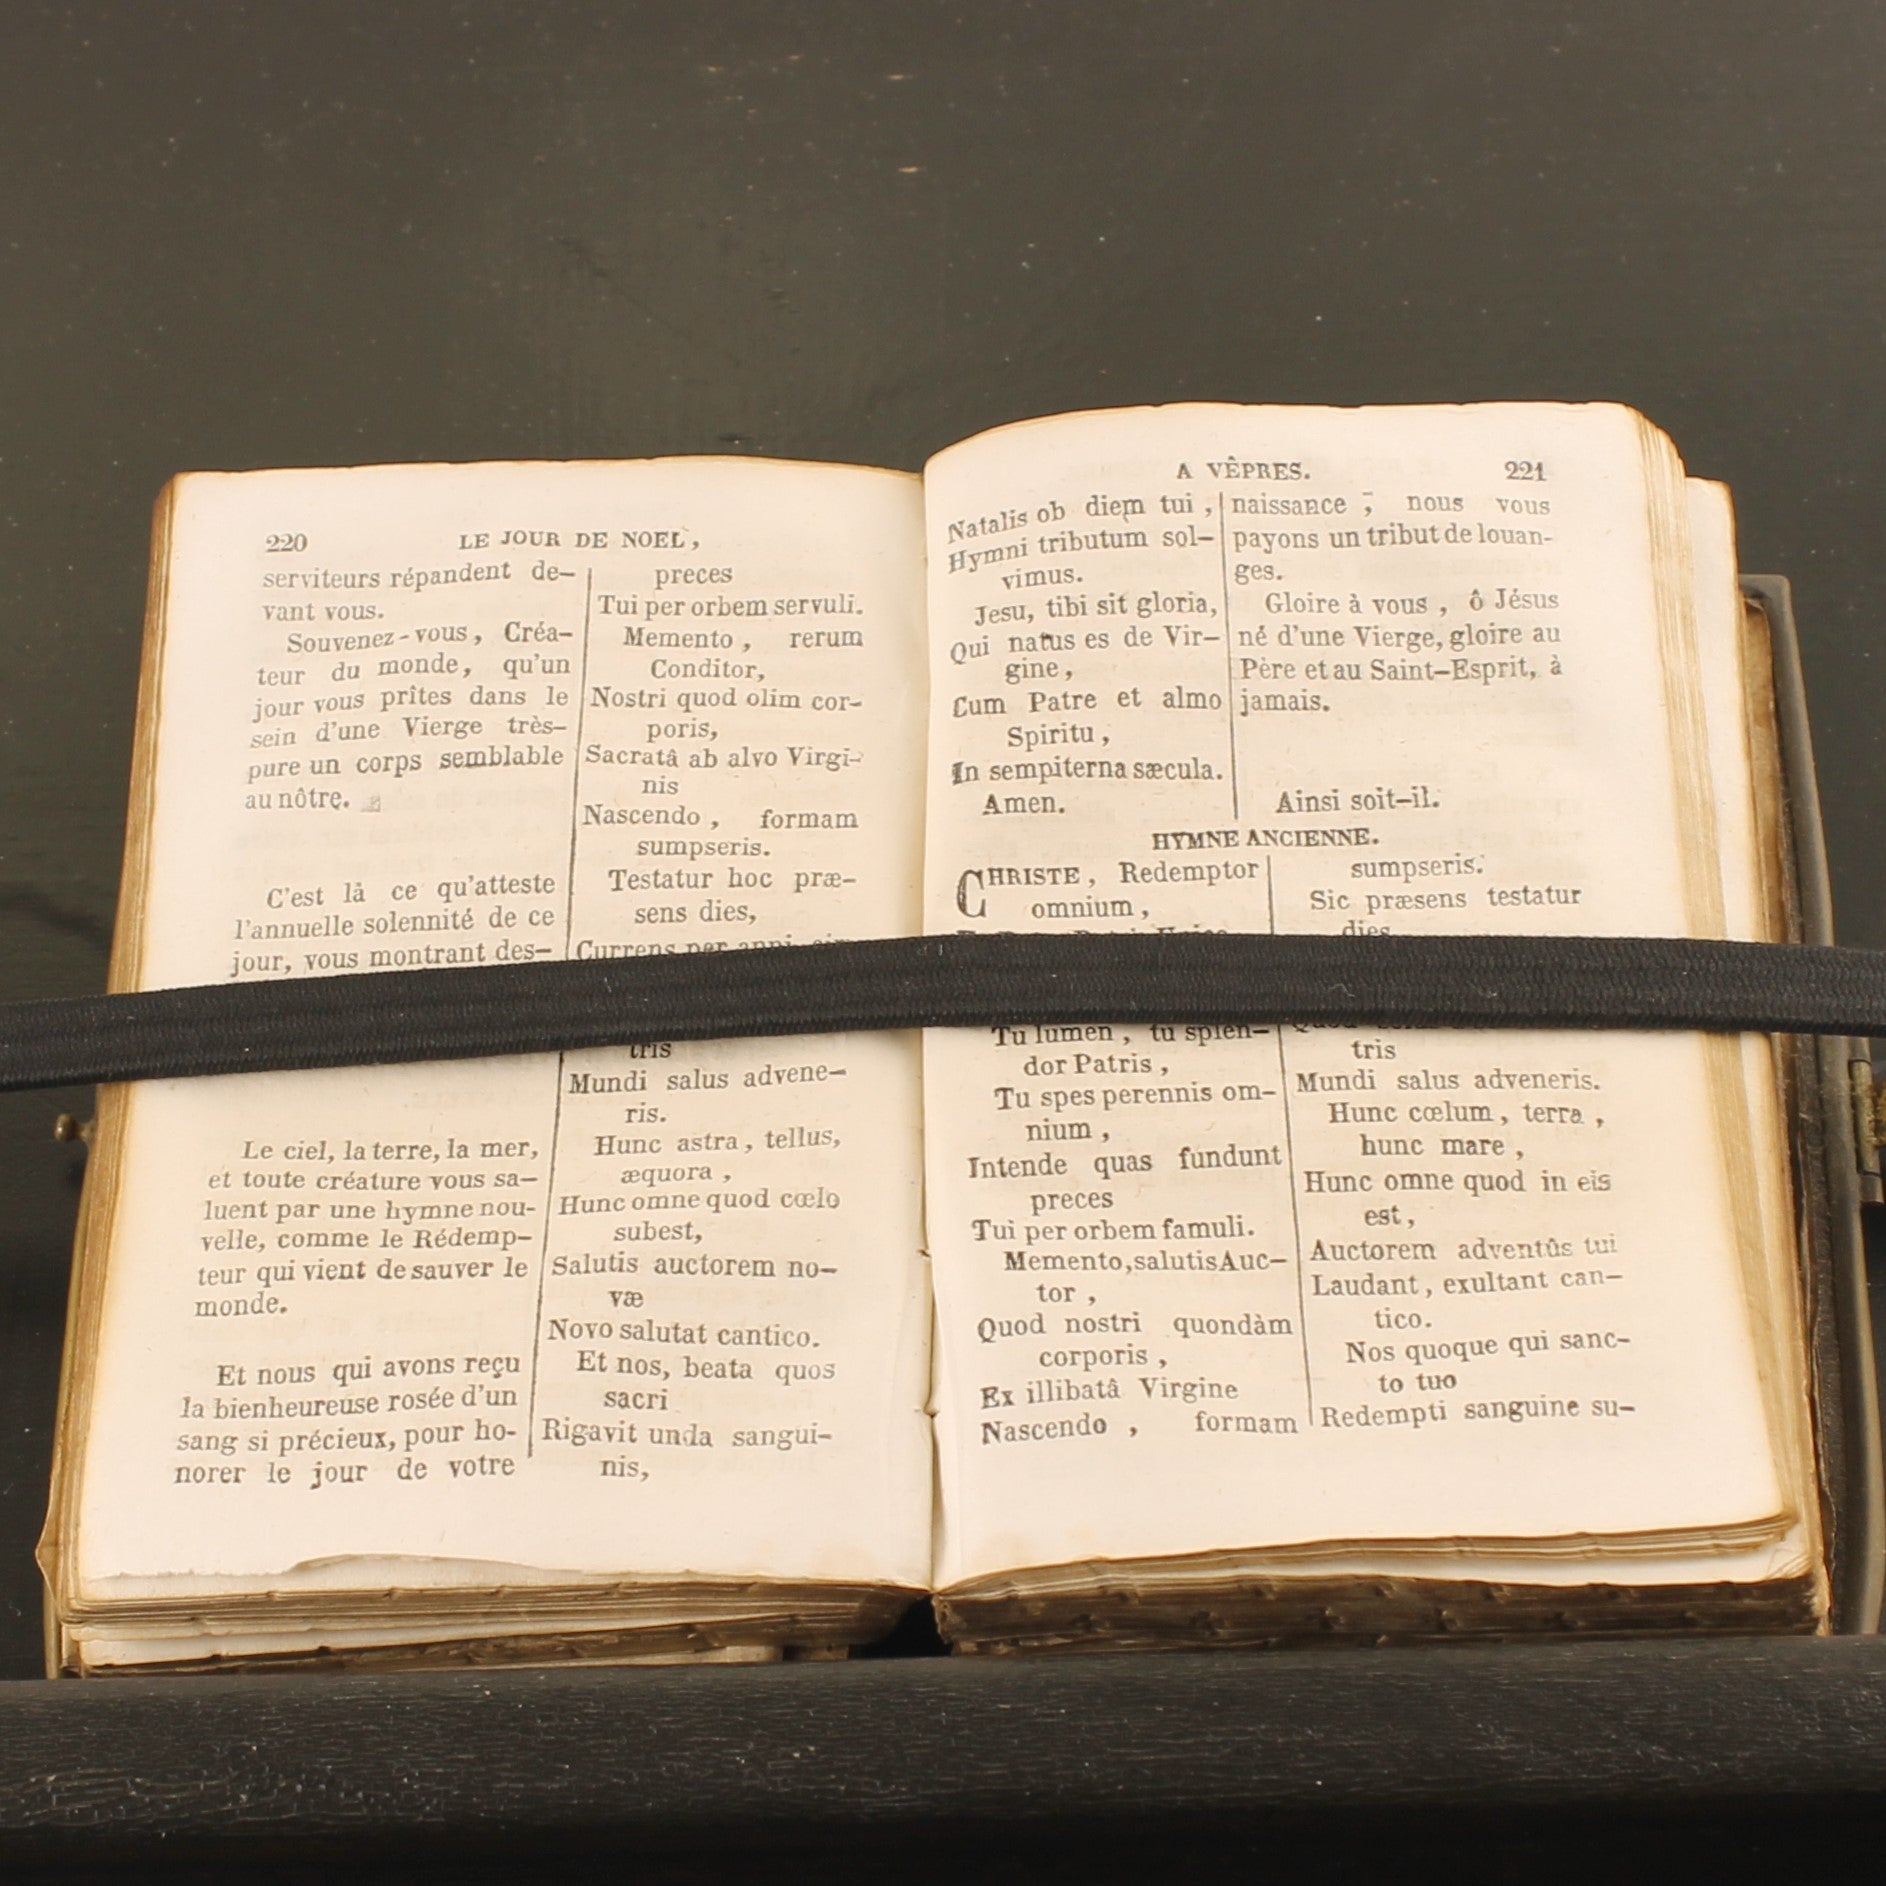 220 LE JOUR DE NOEL,
serviteurs répandent de-
vant vous.
Souvenez-vous, Créa-
teur du monde, qu'un
jour vous prîtes dans le
sein d'une Vierge très-
pure un corps semblable
au nôtre.
C'est là ce qu'atteste
l'annuelle solennité de ce
jour, vous montrant des-
Le ciel, la terre, la mer,
et toute créature vous sa-
luent par une hymne nou-
velle, comme le Rédemp-
teur qui vient de sauver le
monde.
Et nous qui avons reçu
la bienheureuse rosée d'un
sang si précieux, pour ho-
norer le jour de votre
preces
Tui per orbem servuli.
Memento, rerum
Conditor,
Nostri quod olim cor-
poris,
Sacratâ ab alvo Virgi-
nis
Nascendo, formam
sumpseris.
Testatur hoc præ-
sens dies,
Currens per anni
tris
Mundi salus advene-
ris.
Hunc astra, tellus,
æquora,
Hunc omne quod cœlo
subest,
Salutis auctorem no-
væ
Novo salutat cantico.
Et nos, beata quos
sacri
Rigavit unda sangui-
nis,
A VÊPRES. 221
Natalis ob diem tui,
Hymni tributum sol-
vimus.
Jesu, tibi sit gloria,
Qui natus es de Vir-
gine,
Cum Patre et almo
Spiritu,
In sempiterna sæcula.
Amen.
naissance; nous vous
payons un tribut de louan-
ges.
Gloire à vous, ô Jésus
né d'une Vierge, gloire au
Père et au Saint-Esprit, à
jamais.
Ainsi soit-il.
HYMNE ANCIENNE.
CHRISTE, Redemptor
omnium,
Tu lumen, tu splen-
dor Patris,
Tu spes perennis om-
nium,
Intende quas fundunt
preces
Tui per orbem famuli.
Memento, salutis Auc-
tor,
Quod nostri quondàm
corporis,
Ex illibatâ Virgine
Nascendo, formam
sumpseris.
Sic præsens testatur
dies
tris
Mundi salus adveneris.
Hunc cœlum, terra,
hunc mare,
Hunc omne quod in eis
est,
Auctorem adventûs tui
Laudant, exultant can-
tico.
Nos quoque qui sanc-
to tuo
Redempti sanguine su-